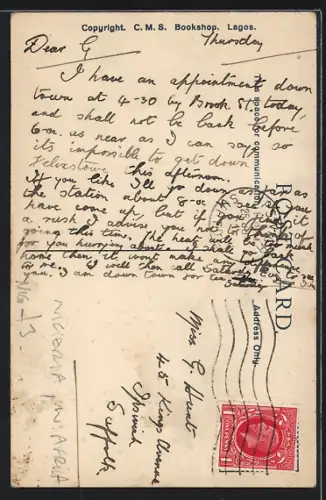 Copyright. C. M. S. Bookshop, Lagos.
Dear G
Thursday
I have an appointment down
town at 4-30 by Brook St today,
and shall not be back before
6 as near as I can say, so
its impossible to get down
Felixstowe this afternoon.
If you like I'll go down as far as
the station about 8 see if
have come up, but if you
a rush I advise you not
going this time. The heat will be
for you hurrying about. I shall be
home then, it wont make any
to me. I will then call Saturday
you. I am down town for
Saturday
space for communication
POST CARD
Address Only
Miss G. Hunt
45 Kings Avenue
Ipswich
Suffolk
NIGERIA W. AFRICA